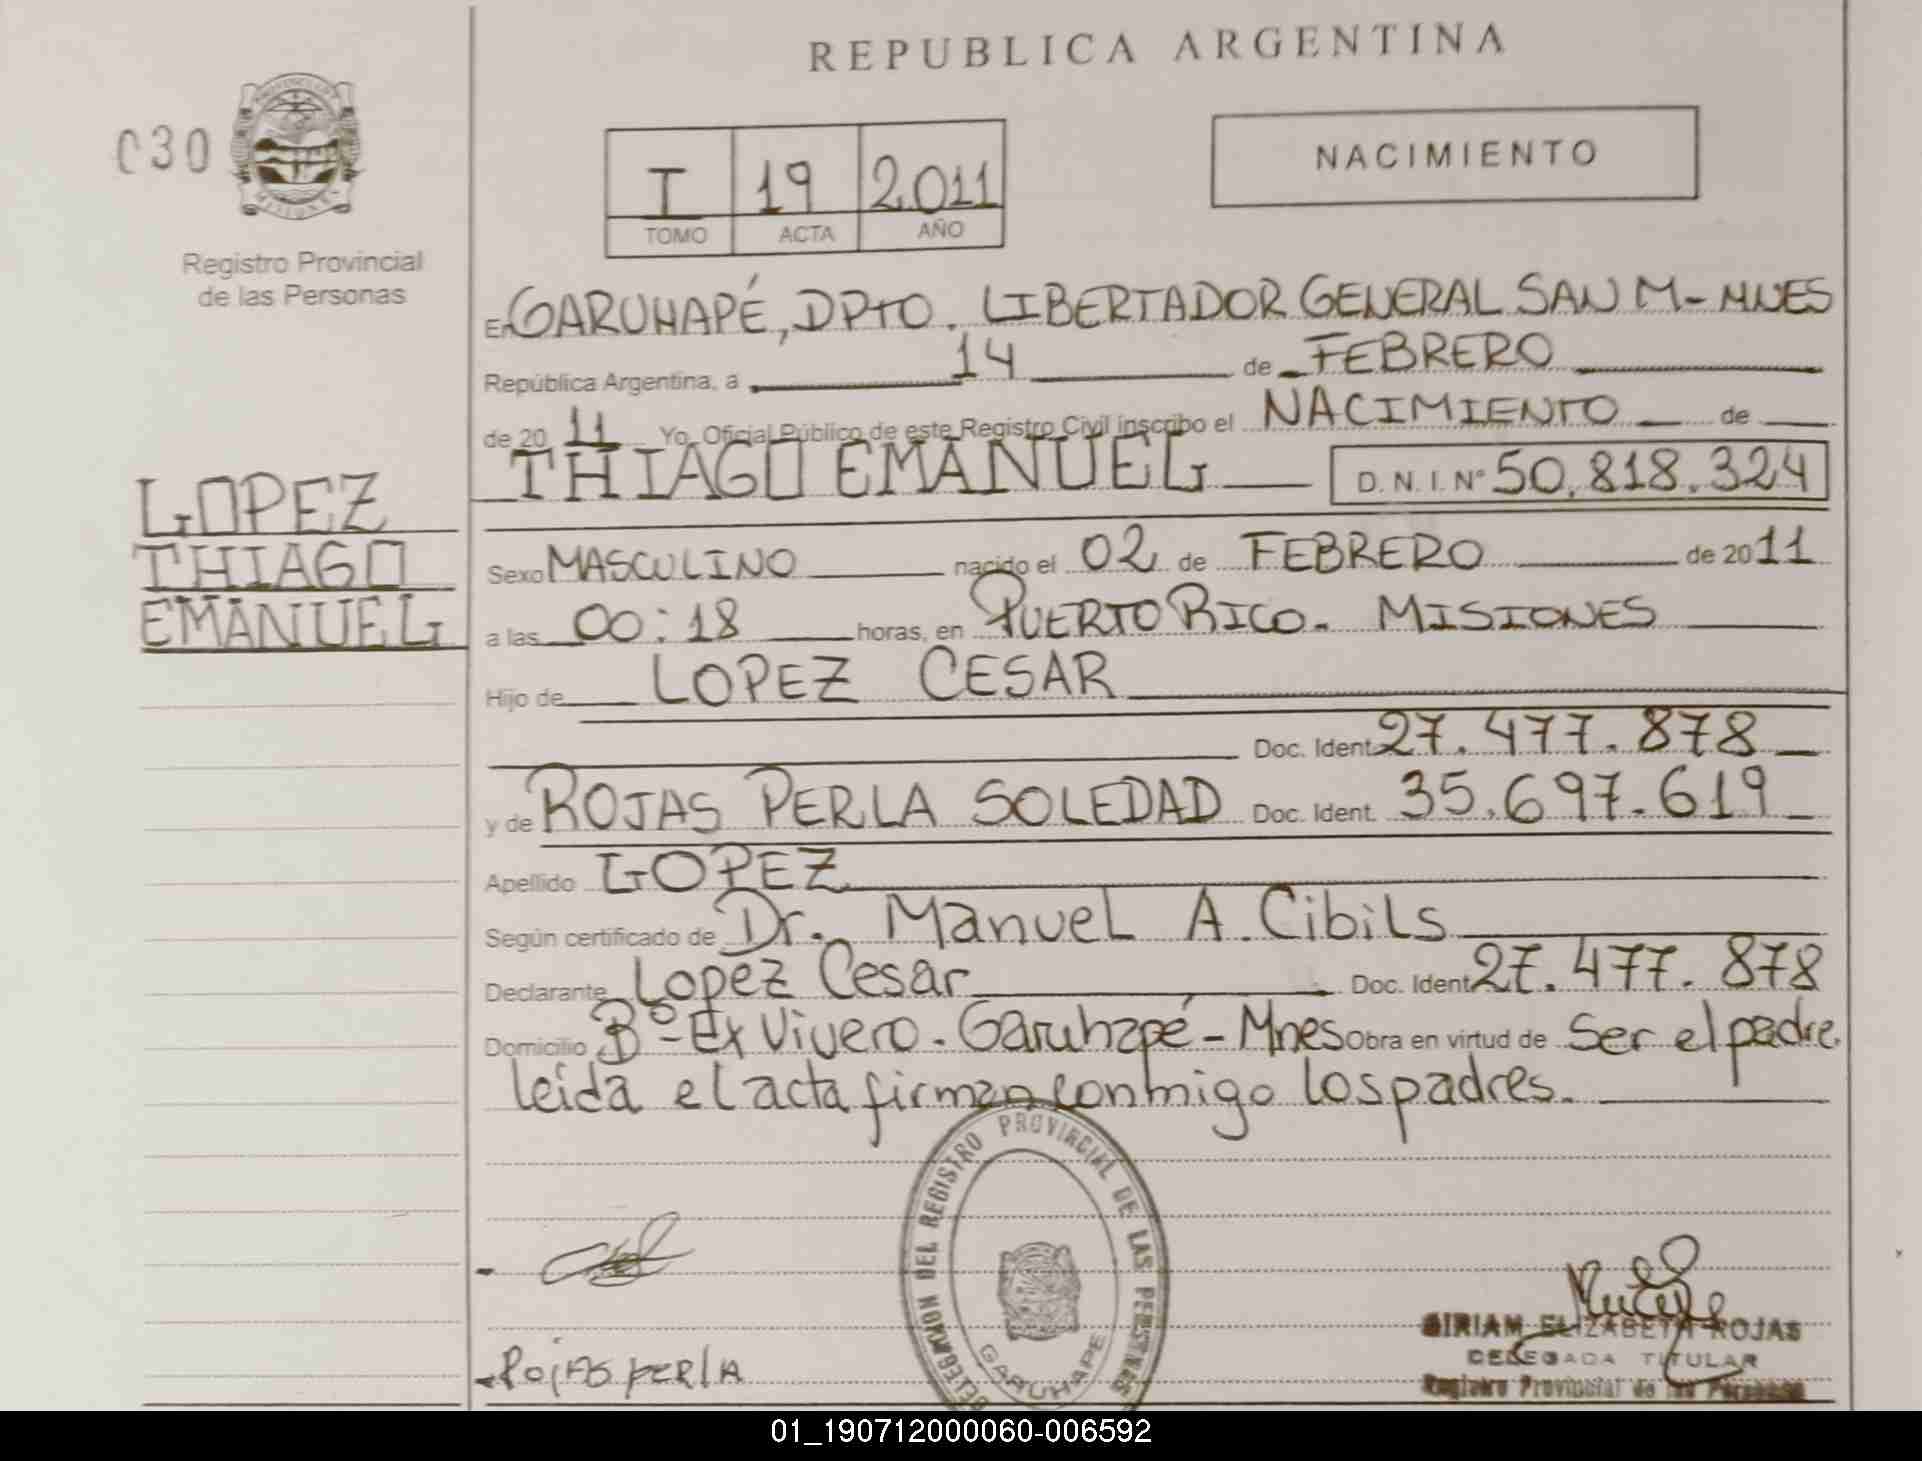 REPUBLICA ARGENTINA
030
PROVINCIA DE
MISIONES
Registro Provincial
de las Personas
I 19 2.011
TOMO ACTA AÑO
NACIMIENTO
En GARUHAPÉ, DPTO. LIBERTADOR GENERAL SAN M- MNES
República Argentina, a 14 de FEBRERO
de 20 11 Yo, Oficial Público de este Registro Civil inscribo el NACIMIENTO de
THIAGO EMANUEL D.N.I. Nº 50.818.324
LOPEZ
THIAGO
EMANUEL
Sexo MASCULINO nacido el 02 de FEBRERO de 2011
a las 00:18 horas, en PUERTO RICO. MISIONES
Hijo de LOPEZ CESAR
Doc. Ident. 27.477.878
y de ROJAS PERLA SOLEDAD Doc. Ident. 35.697.619
Apellido LOPEZ
Según certificado de Dr. Manuel A. Cibils
Declarante Lopez Cesar Doc. Ident. 27.477.878
Domicilio Bº-Ex Vivero. Garuhapé - Mnes Obra en virtud de Ser el padre.
leída el acta firman conmigo los padres.
DELEGACION DEL REGISTRO PROVINCIAL DE LAS PERSONAS
GARUHAPE
ROJAS PERLA
MIRIAM ELIZABETH ROJAS
DELEGADA TITULAR
Registro Provincial de las Personas
01_190712000060-006592